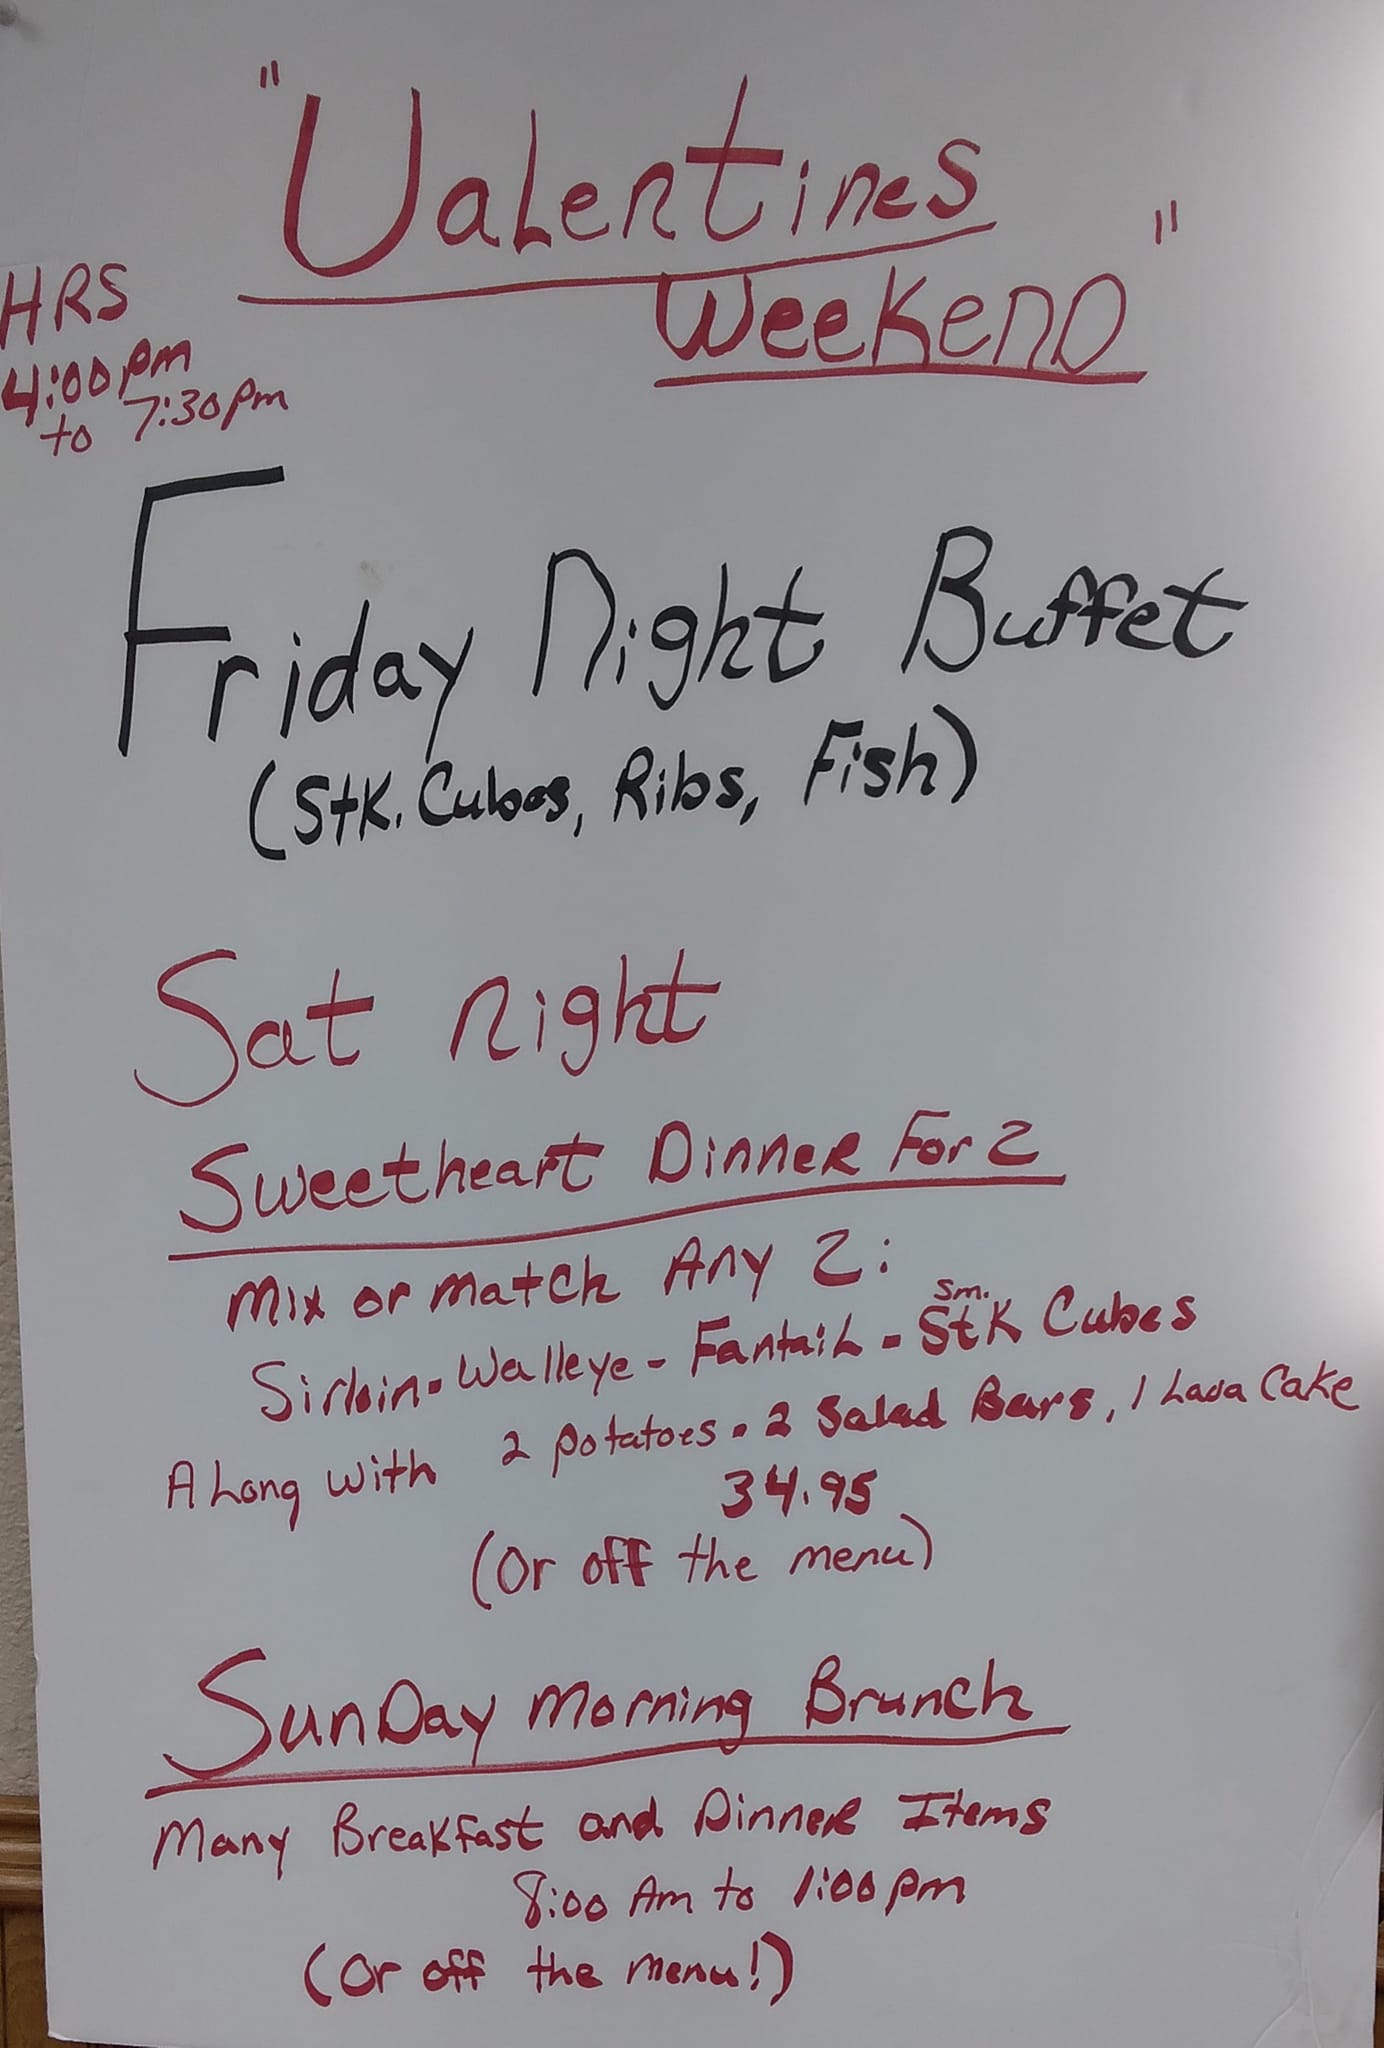 "Valentines
Weekend"
HRS
4:00pm
to 7:30pm
Friday Night Buffet
(Stk. Cubes, Ribs, Fish)
Sat Night
Sweetheart Dinner For 2
Mix or Match Any 2:
Sirloin - Walleye - Fantail - sm. Stk Cubes
Along with 2 potatoes - 2 Salad Bars, 1 Lava Cake
34.95
(Or off the menu)
Sunday Morning Brunch
Many Breakfast and Dinner Items
8:00 Am to 1:00 pm
(Or off the menu!)